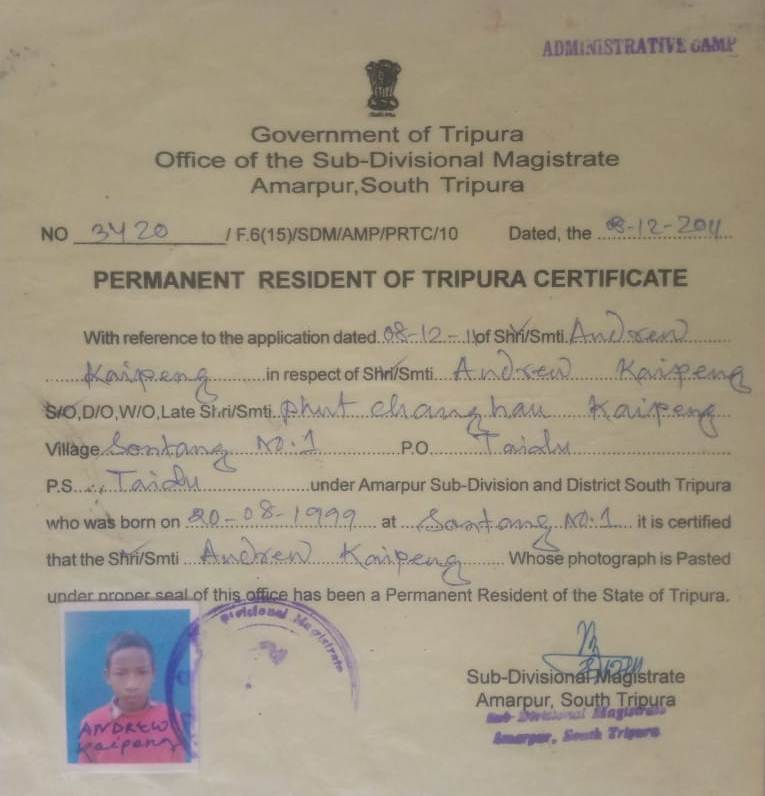 ADMINISTRATIVE CAMP
Government of Tripura
Office of the Sub-Divisional Magistrate
Amarpur,South Tripura
NO 3420 / F.6(15)/SDM/AMP/PRTC/10 Dated, the 08-12-2011
PERMANENT RESIDENT OF TRIPURA CERTIFICATE
With reference to the application dated 08-12-11 of Shri/Smti Andrew
Kaipeng in respect of Shri/Smti Andrew Kaipeng
S/O,D/O,W/O,Late Shri/Smti. Phut Changhau Kaipeng
Village Sontang No.1 P.O Taidu
P.S. Taidu under Amarpur Sub-Division and District South Tripura
who was born on 20-08-1999 at Sontang No.1 it is certified
that the Shri/Smti Andrew Kaipeng Whose photograph is Pasted
under proper seal of this office has been a Permanent Resident of the State of Tripura.
Divisional Magistrate
ANDREW
Kaipeng
Sub-Divisional Magistrate
Amarpur, South Tripura
Sub-Divisional Magistrate
Amarpur, South Tripura